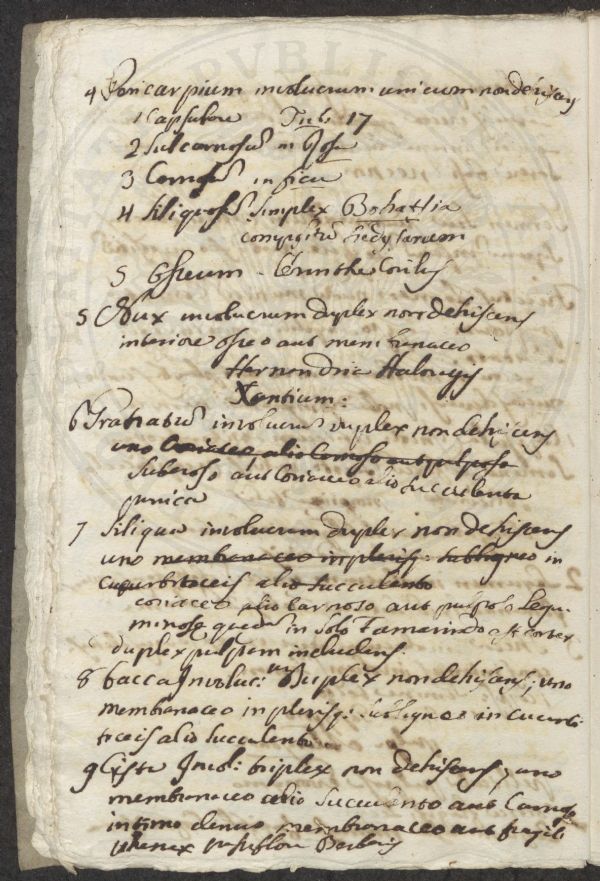 4 Pericarpium involucrum unicum non dehiscens
1 Capsulare Tub. 17
2 Subcarnosu in Rosa
3 Carnosu in ficu
4 Siliquosu Simplex
compositu hedysarum
5 Osseum
5 Nux involucrum duplex non dehiscens
interiore osseo aut membranaceo
Hernandria
Xantium:
6 involucru duplex non dehiscens
uno Coriaceo alio Carnoso aut pulposo
Suberoso aut Coriaceo alio succulento
punica
7 Siliqua involucrum duplex non dehiscens
uno membranaceo in plerisq: subligneo in
Cucurbitaceis alio succulento
coriaceo alio Carnoso aut pulposo legu
minose quedam in Solo Tamarindo est cortex
duplex pulpam includens.
8 bacca Involuc: duplex non dehiscens; uno
membranaceo in plerisq: subligneo in cucurbi
taceis alio succulento.
9 Invol: triplex non dehiscens, uno
membranaceo alio succulento aut Carnoso
intimo denuo membranaceo aut fragili